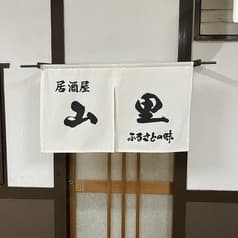 居酒屋
山里
ふるさとの味